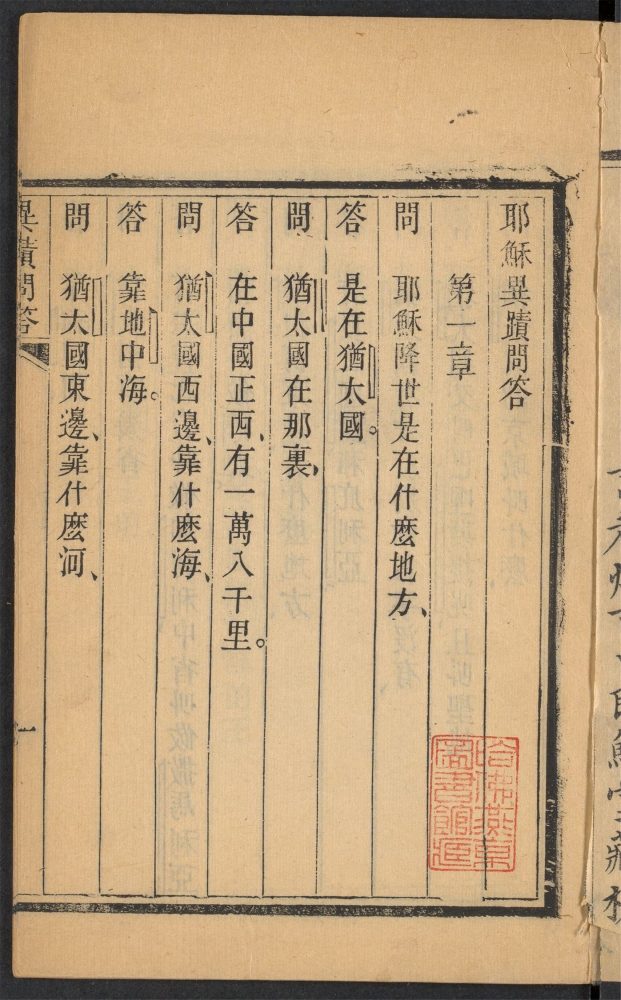 耶穌異蹟問答
第一章
問 耶穌降世是在什麽地方、
答 是在猶太國。
問 猶太國在那裏、
答 在中國正西、有一萬八千里。
問 猶太國西邊、靠什麽海、
答 靠地中海。
問 猶太國東邊、靠什麽河、
異蹟問答
一
哈佛燕京圖書館藏